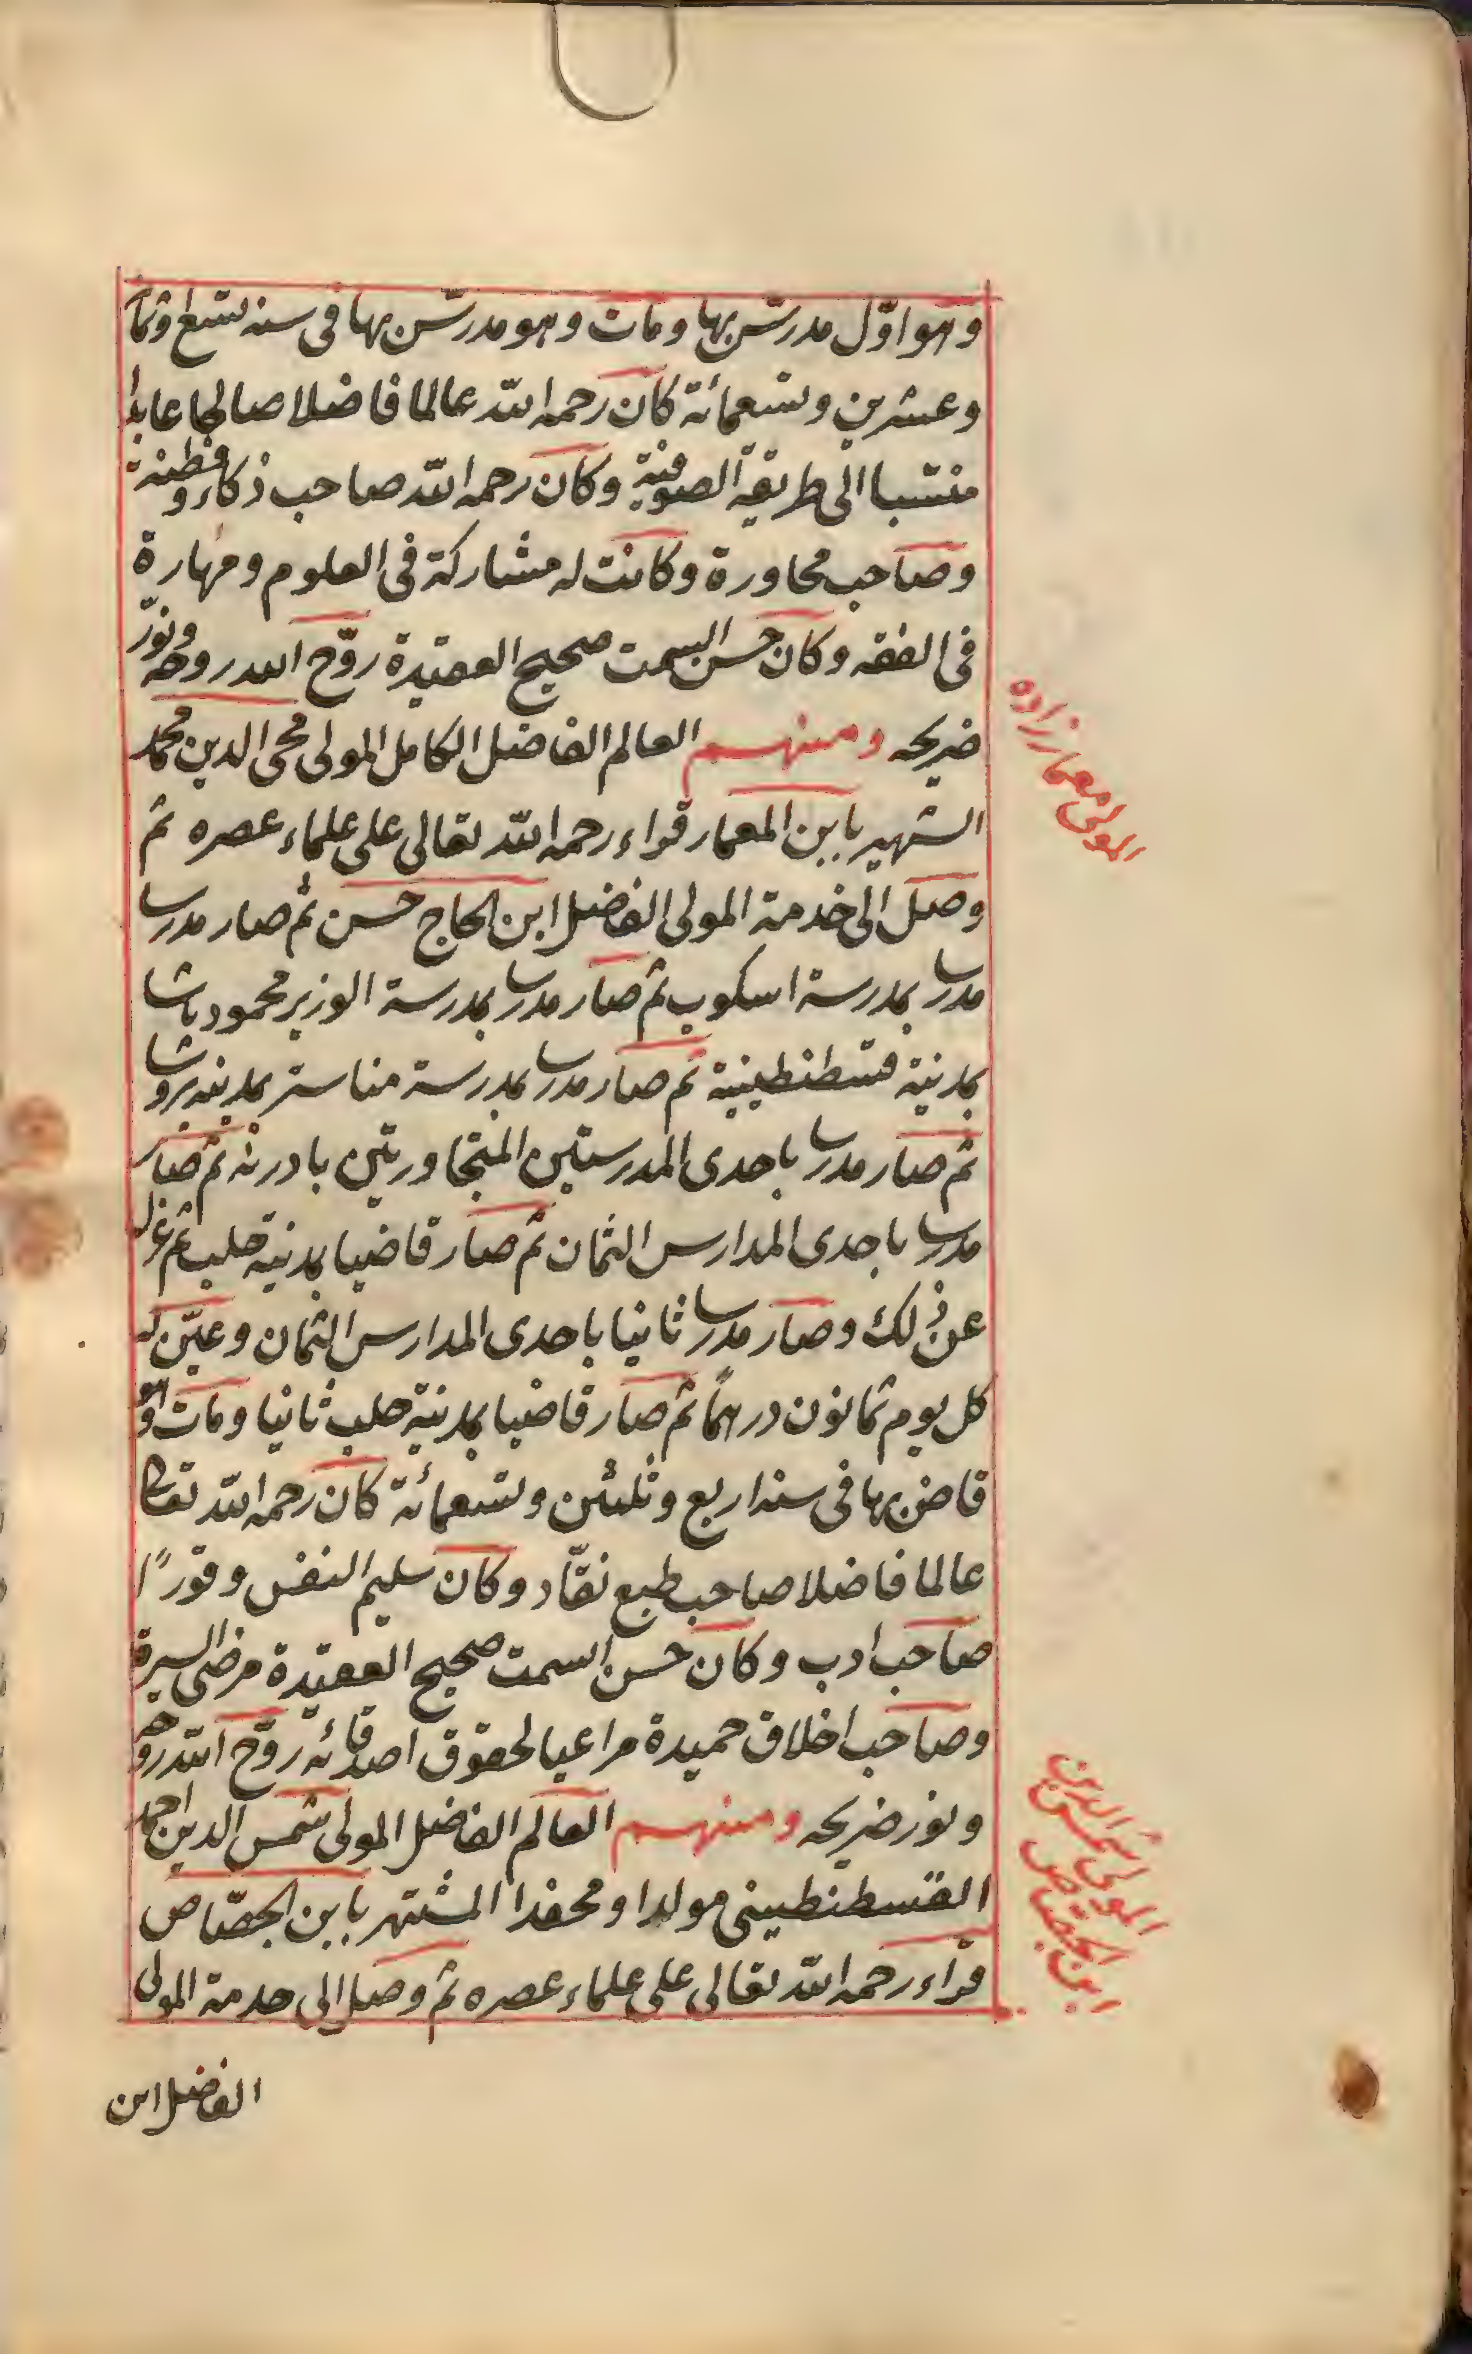 وهو اوّل مدرّس بها ومات وهو مدرّس بها فى سنه تسع وثما
وعشرين وتسعمائة كان رحمه الله عالما فاضلا صالحا عابدا
منتسبا الى طريقة الصوفية وكان رحمه الله صاحب ذكاء وفطنة
وصاحب محاورة وكانت له مشاركة فى العلوم ومهارة
فى الفقه وكان حسن السمت صحيح العقيدة روّح الله روحه ونوّر
ضريحه ومنهم العالم الفاضل الكامل المولى محى الدين محمد
الشهير بابن المعمار قراء رحمه الله تعالى على علماء عصره ثم
وصل الى خدمة المولى الفاضل ابن الحاج حسن ثم صار مدرسا
مدرسا بمدرسة اسكوب ثم صار مدرسا بمدرسة الوزير محمود باشا
بمدنية قسطنطينية ثم صار مدرسا بمدرسة مناستر بمدينه بروسا
ثم صار مدرسا باحدى المدرستين المتجاورتين بادرنه ثم صار
مدرسا باحدى المدارس الثمان ثم صار قاضيا بمدنية حلب ثم عزل
عن ذلك وصار مدرسا ثانيا باحدى المدارس الثمان وعيّن له
كل يوم ثمانون درهمًا ثم صار قاضيا بمدنية حلب ثانيا ومات وهو
قاض بها فى سنه اربع وثلثين وتسعمائة كان رحمه الله تعالى
عالما فاضلا صاحب طبع نقّاد وكان سليم النفس وقورًا
صاحب ادب وكان حسن السمت صحيح العقيدة مرضى السيرة
وصاحب اخلاق حميدة مراعيا لحقوق اصدقائه روّح الله روحه
ونور ضريحه ومنهم العالم الفاضل المولى شمس الدين احمد
القسطنطينى مولدا ومحفدا المشتهر بابن الجصّاص
قراء رحمه الله تعالى على علماء عصره ثم وصل الى خدمة المولى
الفاضل ابن
المولى معمار زاده
المولى شمس الدين
ابن الجصّاص